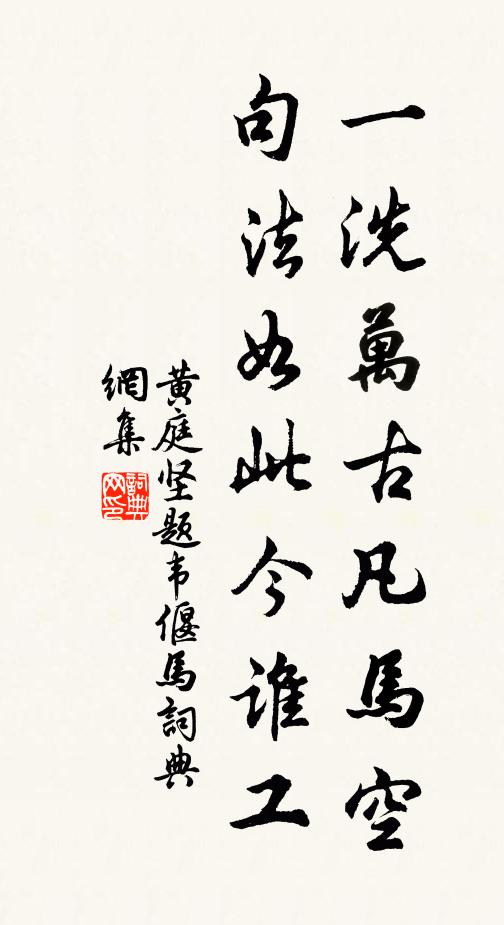 一洗萬古凡馬空
句法如此今誰工
黄庭坚题韦偃馬詞典
網集
詞典
网印